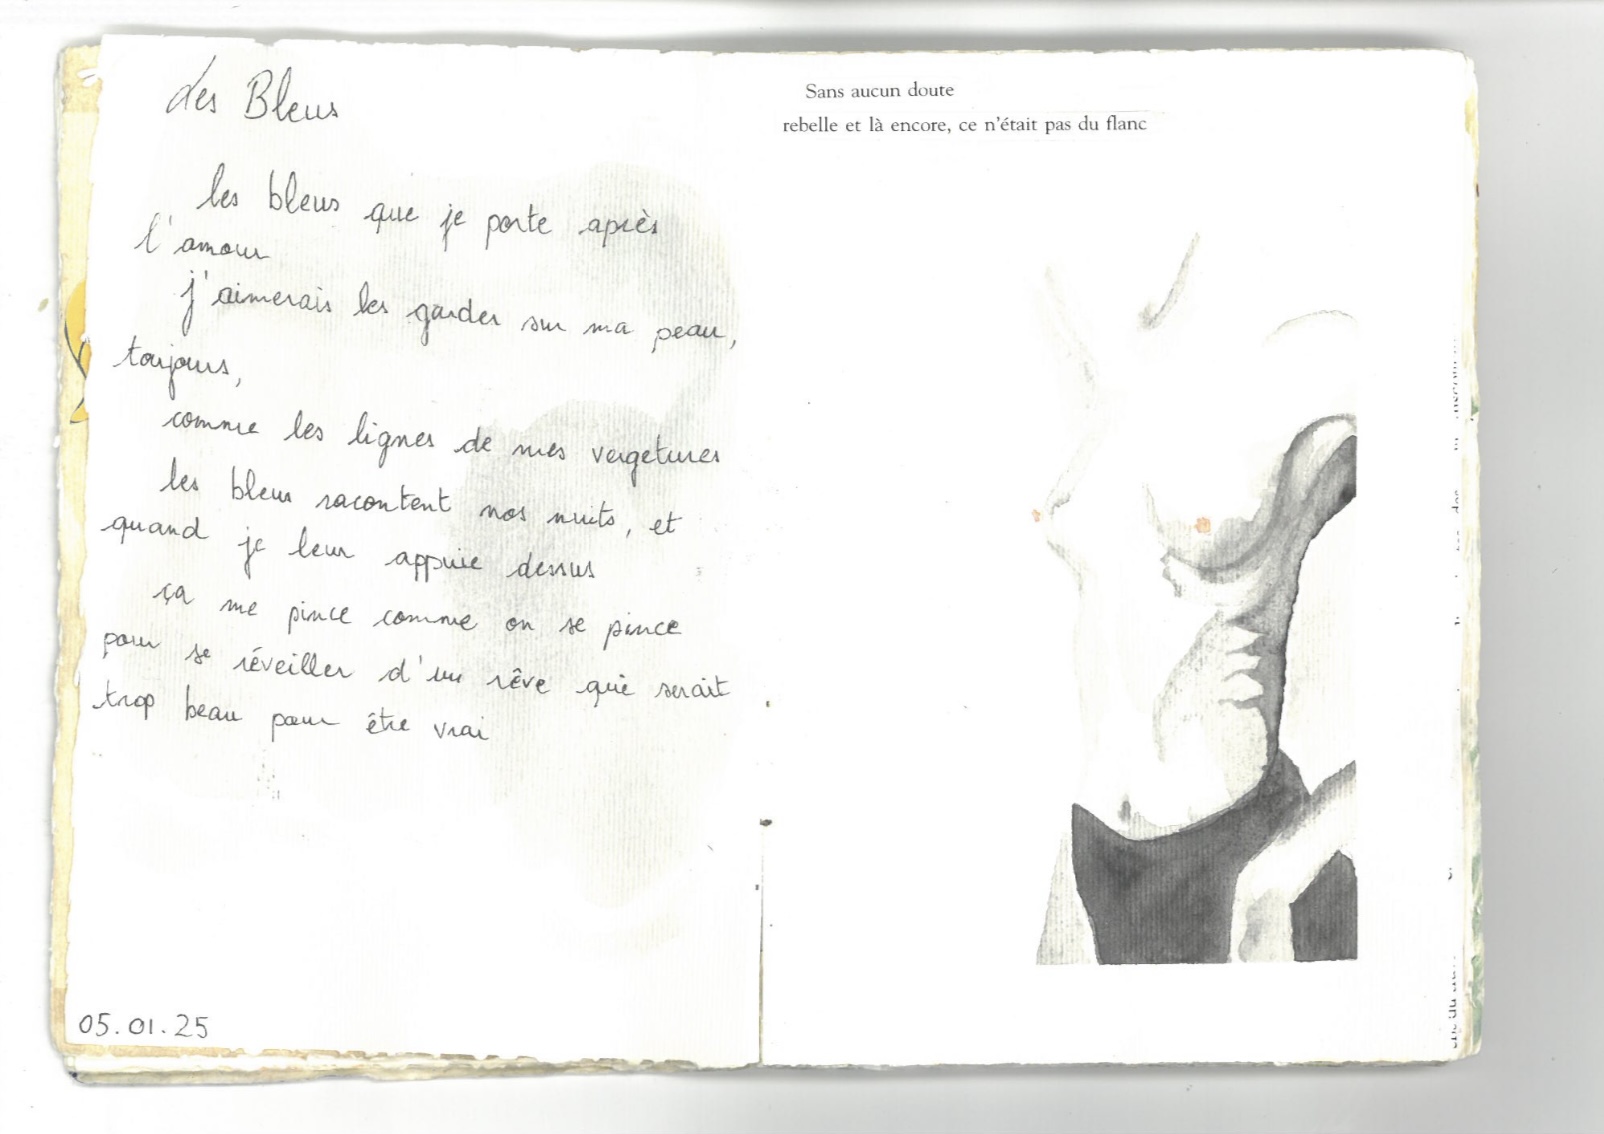 Les Bleus
les bleus que je porte après
l'amour
j'aimerais les garder sur ma peau,
toujours,
comme les lignes de mes vergetures
les bleus racontent nos nuits, et
quand je leur appuie dessus
ça me pince comme on se pince
pour se réveiller d'un rêve qui serait
trop beau pour être vrai
05.01.25
Sans aucun doute
rebelle et là encore, ce n'était pas du flanc